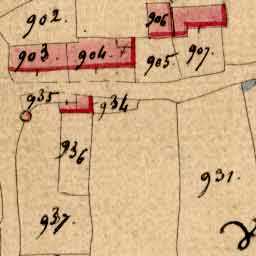 902.
906
903.
904.
905.
907.
935
934
936
931.
937.